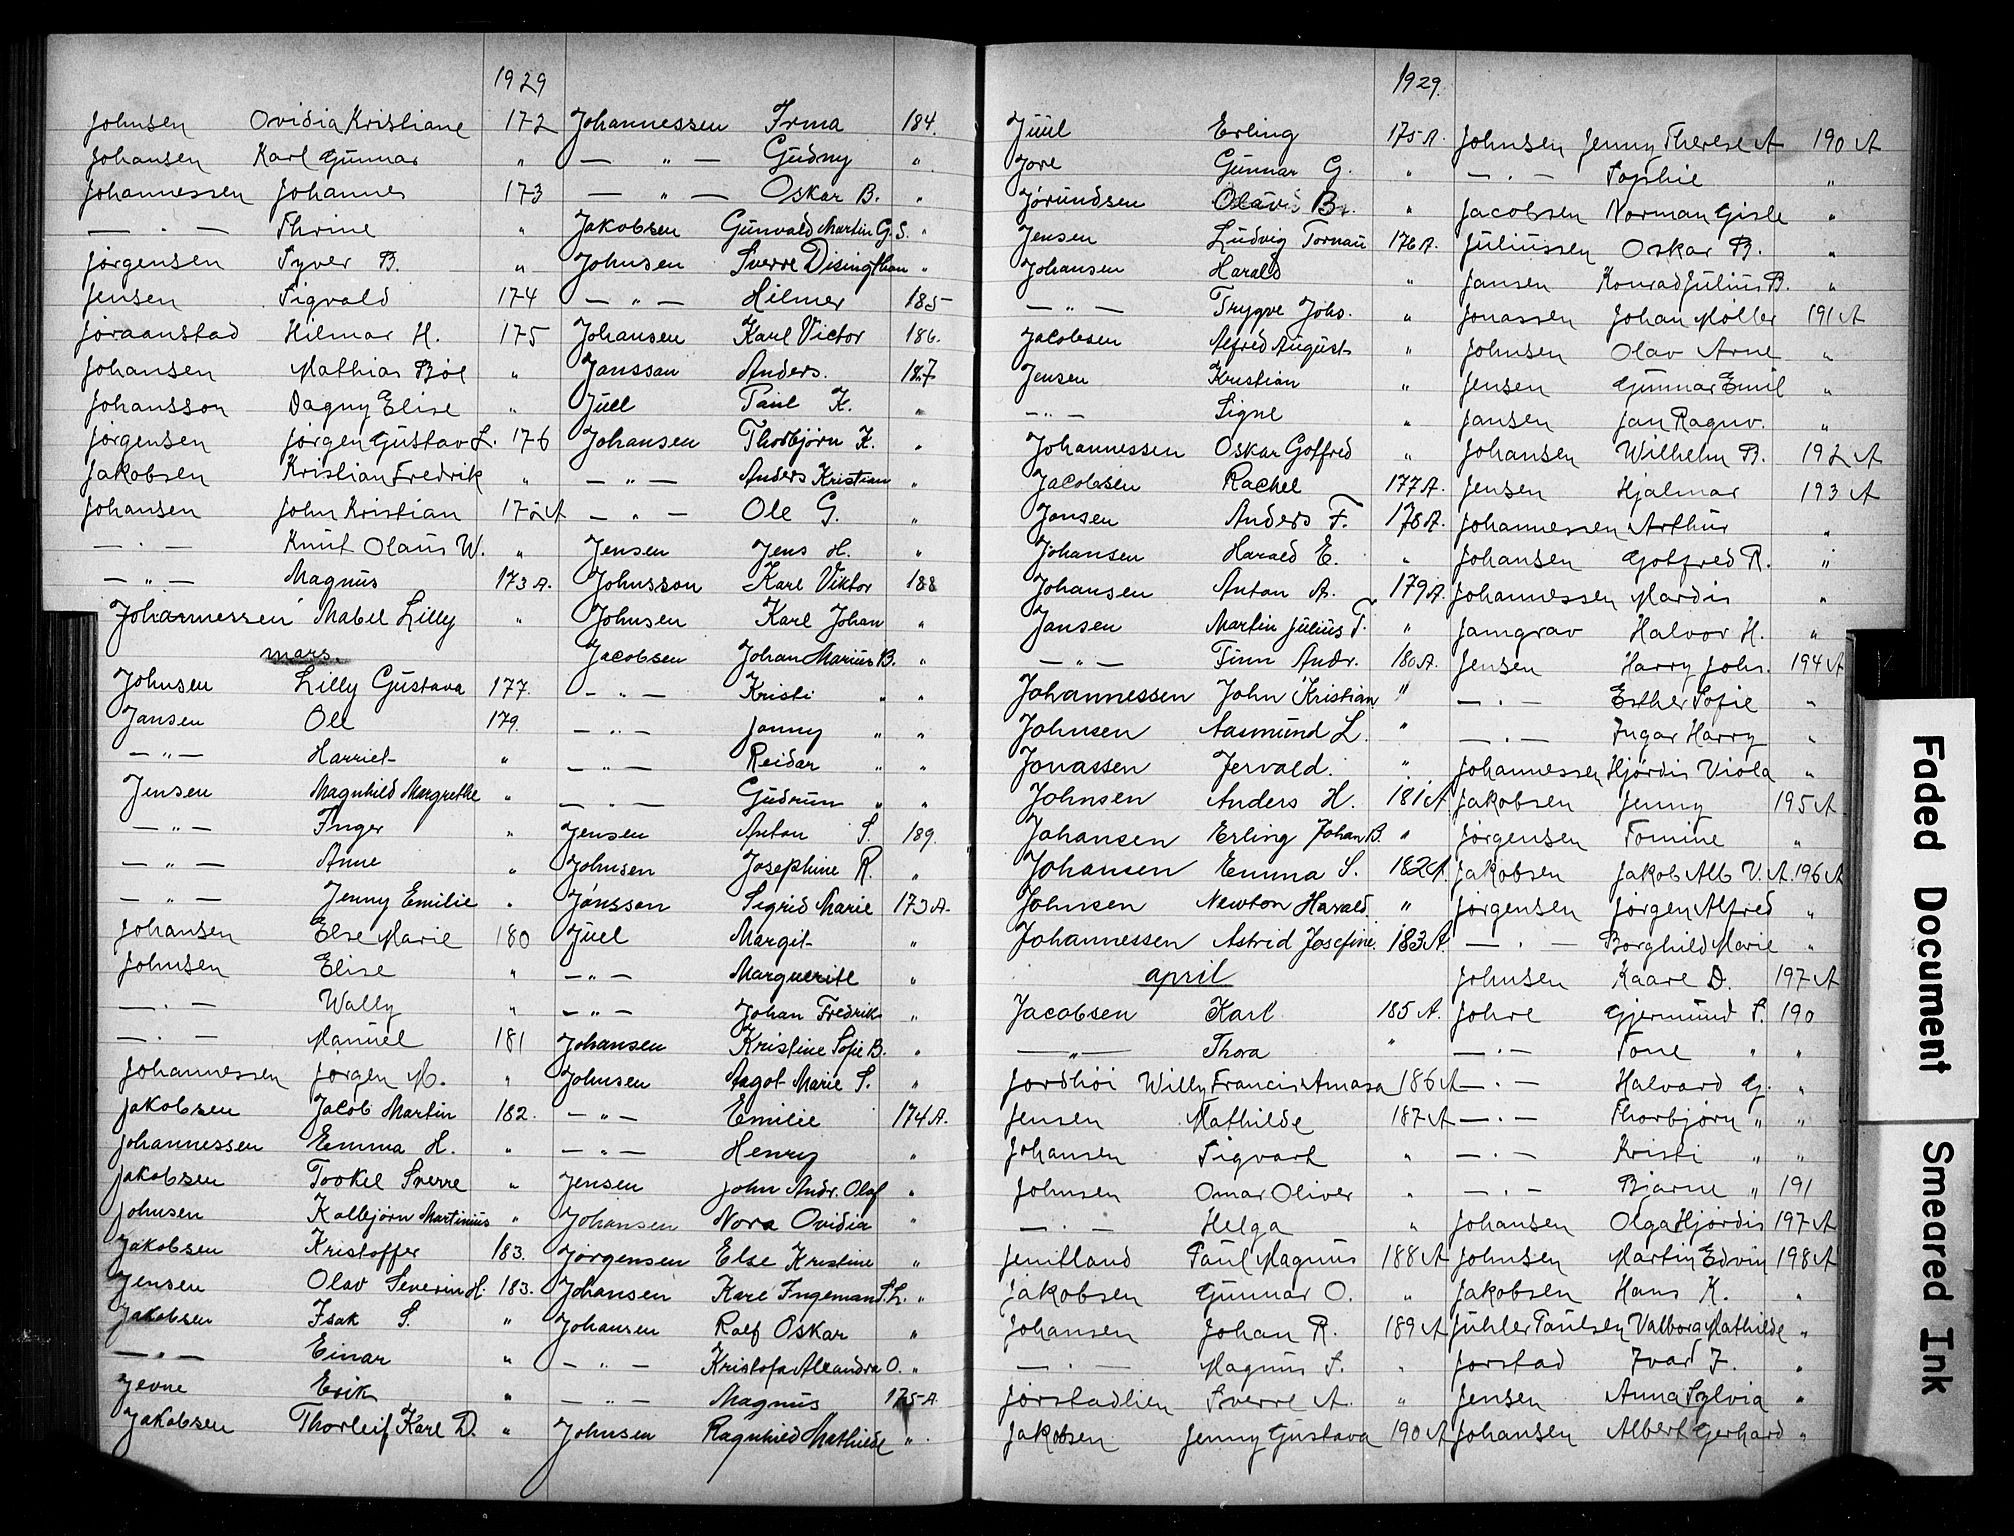 1929
Johnsen Ovidia Kristiane 172
Johansen Karl Gunnar "
Johannessen Johannes 173
— " — Thrine "
Jørgensen Syver B. "
Jensen Sigvald 174
Joraanstad Hilmar H. 175
Johansen Mathias Bøe "
Johansson Dagny Elise "
Jørgensen Jørgen Gustav L. 176
Jakobsen Kristian Fredrik "
Johansen John Kristian 172 A
— " — Knut Olaus W. "
— " — Magnus 173 A.
Johannessen Mabel Lilly "
mars.
Johnsen Lilly Gustava 177.
Jansen Ole 179.
— " — Harriet "
Jensen Magnhild Margrethe "
— " — Inger "
— " — Anne "
— " — Jenny Emilie "
Johansen Else Marie 180
Johnsen Elise "
— " — Wally "
— " — Manuel 181
Johannessen Jørgen M. "
Jakobsen Jacob Martin 182.
Johannessen Emma H. "
Jakobsen Tookel Sverre "
Johnsen Kolbjørn Martinius "
Jakobsen Kristoffer 183.
Jensen Olav Severin H. 183.
Jakobsen Isak S. "
— " — Einar "
Jevne Erik "
Jakobsen Thorleif Karl D. "
Johannessen Irma 184.
— " — Gudny "
— " — Oskar B. "
Jakobsen Gunvald Martin G. S. "
Johnsen Sverre Disingthon "
— " — Hilmer 185
Johansen Karl Victor 186.
Janssan Anders. 187
Juell Paul K. "
Johansen Thorbjørn K. "
— " — Anders Kristian "
— " — Ole G. "
Jensen Jens H. "
Johnsson Karl Viktor 188
Johnsen Karl Johan "
Jacobsen Johan Marius B. "
— " — Kristi " "
— " — Jonny " "
— " — Reidar " "
— " — Gudrun " "
Jensen Anton S. 189.
Johnsen Josephine R. "
Jonsson Sigrid Marie 173 A.
Juel Margit "
— " — Marguerite "
— " — Johan Fredrik "
Johansen Kristine Sofie B. "
Johnsen Aagot Marie S. "
— " — Emilie 174 A.
— " — Henry "
Jensen John Andr. Olaf "
Johansen Nora Ovidia "
Jørgensen Else Kristine "
Johansen Kare Ingemand S. L. "
Johansen Ralf Oskar "
— " — Kristofa Alexandra O. "
— " — Magnus 175 A
Johnsen Ragnhild Mathilde "
1929.
Juul Erling 175 A.
Jore Gunnar G. "
Jørundsen Olava B. "
Jensen Ludvig Tornau 176 A.
Johansen Harald "
— " — Trygve Johs. "
Jacobsen Alfred August "
Jensen Kristian "
— " — Signe "
Johannessen Oskar Gotfred "
Jacobsen Rachel 177 A.
Jansen Anders F. 178 A.
Johansen Harald E. "
Johansen Anton A. 179 A.
Jansen Martin Julius T. "
— " — Finn Andr. 180 A.
Johannessen John Kristian "
Johnsen Aasmund L. "
Jonassen Jervald. "
Johnsen Anders H. 181 A
Johansen Erling Johan B. "
Johansen Emma S. 182 A.
Johnsen Newton Harald "
Johannessen Astrid Josefine. 183 A.
april
Jacobsen Karl 185 A.
— " — Thora "
Jordhøi Willy Francis Amasa 186 A
Jensen Mathilde 187 A
Johansen Sigvart "
Johnsen Omar Oliver "
— " — Helga "
Jenitland Paul Magnus 188 A
Jakobsen Gunnar O. "
Johansen Johan R. 189 A
— " — Magnus S. "
Jørstadlien Sverre A. "
Jakobsen Jenny Gustava 190 A
Johnsen Jenny Therese A 190 A
— " — Sophie "
Jacobsen Norman Gisle "
Juliussen Oskar B. "
Jansen Konrad Julius B. "
Jonassen Johan Møller 191 A
Johnsen Olav Arne "
Jensen Gunnar Emil "
Jansen Jan Ragnv. "
Johansen Wilhelm B. 192 A
Jensen Hjalmar 193 A
Johannessen Arthur "
Johansen Gotfred R. "
Johannessen Mardis "
Jamgrav Halvor H. "
Jensen Harry Johs. 194 A
— " — Esther Sofie "
— " — Ingar Harry "
Johannessen Hjørdis Viola "
Jakobsen Jenny 195 A
Jørgensen Tomine "
Jakobsen Jakob Alb V. A. 196 A
Jørgensen Jørgen Alfred "
— " — Borghild Marie "
Johnsen Kaare D. 197 A
Johre Gjermund S. 190
— " — Tone " "
— " — Halvard G. "
— " — Thorbjørn " "
— " — Kristi " "
— " — Bjarne " 191
Johansen Olga Hjørdis 197 A
Johnsen Martin Edvin 198 A
Jakobsen Hans K. "
Juhler Paulsen Valborg Mathilde "
Jorstad Ivar J. "
Jensen Anna Sylvia "
Johansen Albert Gerhard "
Faded Document
Smeared Ink